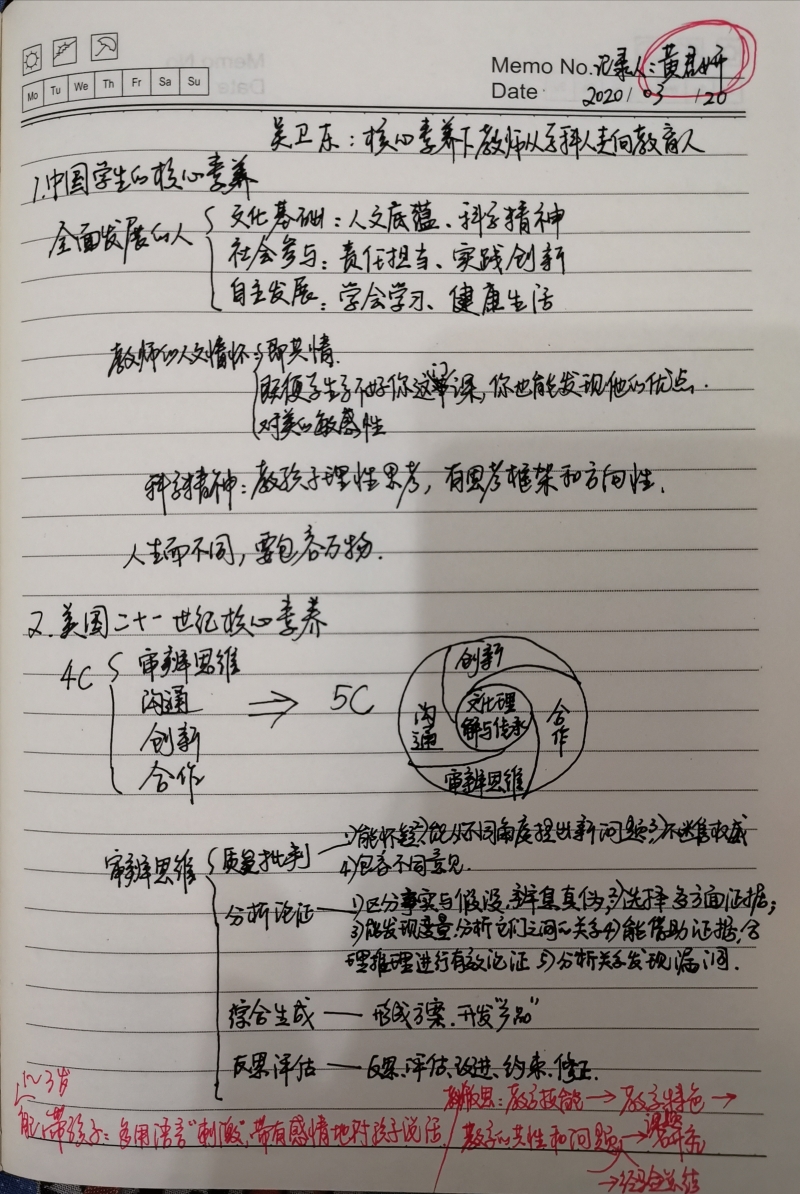 Memo No. 记录人：黄君妍
Mo Tu We Th Fr Sa Su
Date 2020/03/20
吴卫东：核心素养下教师从学科人走向教育人
1.中国学生的核心素养
全面发展的人
文化基础：人文底蕴、科学精神
社会参与：责任担当、实践创新
自主发展：学会学习、健康生活
教师的人文情怀 即共情.
既便学生学不好你这门课，你也能发现他的优点.
对美的敏感性
科学精神：教孩子理性思考，有思考框架和方向性.
人生而不同，要包容万物.
2.美国二十一世纪核心素养
4C
审辨思维
沟通
创新
合作
⇒ 5C
创新
沟通
文化理
解与传承
合作
审辨思维
审辨思维
质疑批判 — 1)能怀疑2)能从不同角度提出新问题3)不迷信权威
4)包容不同意见.
分析论证 — 1)区分事实与假设,辨真伪,2)选择多方面证据;
3)能发现变量,分析它们之间的关系4)能借助证据,合
理推理进行有效论证 5)分析关系发现漏洞.
综合生成 — 形成方案.开发"产品"
反思评估 — 反思、评估、改进、约束、修正.
1~3岁
带孩子：多用语言"刺激",带有感情地对孩子说话
教学技能→教学特色→
教学的共性和问题→课题
→经验总结